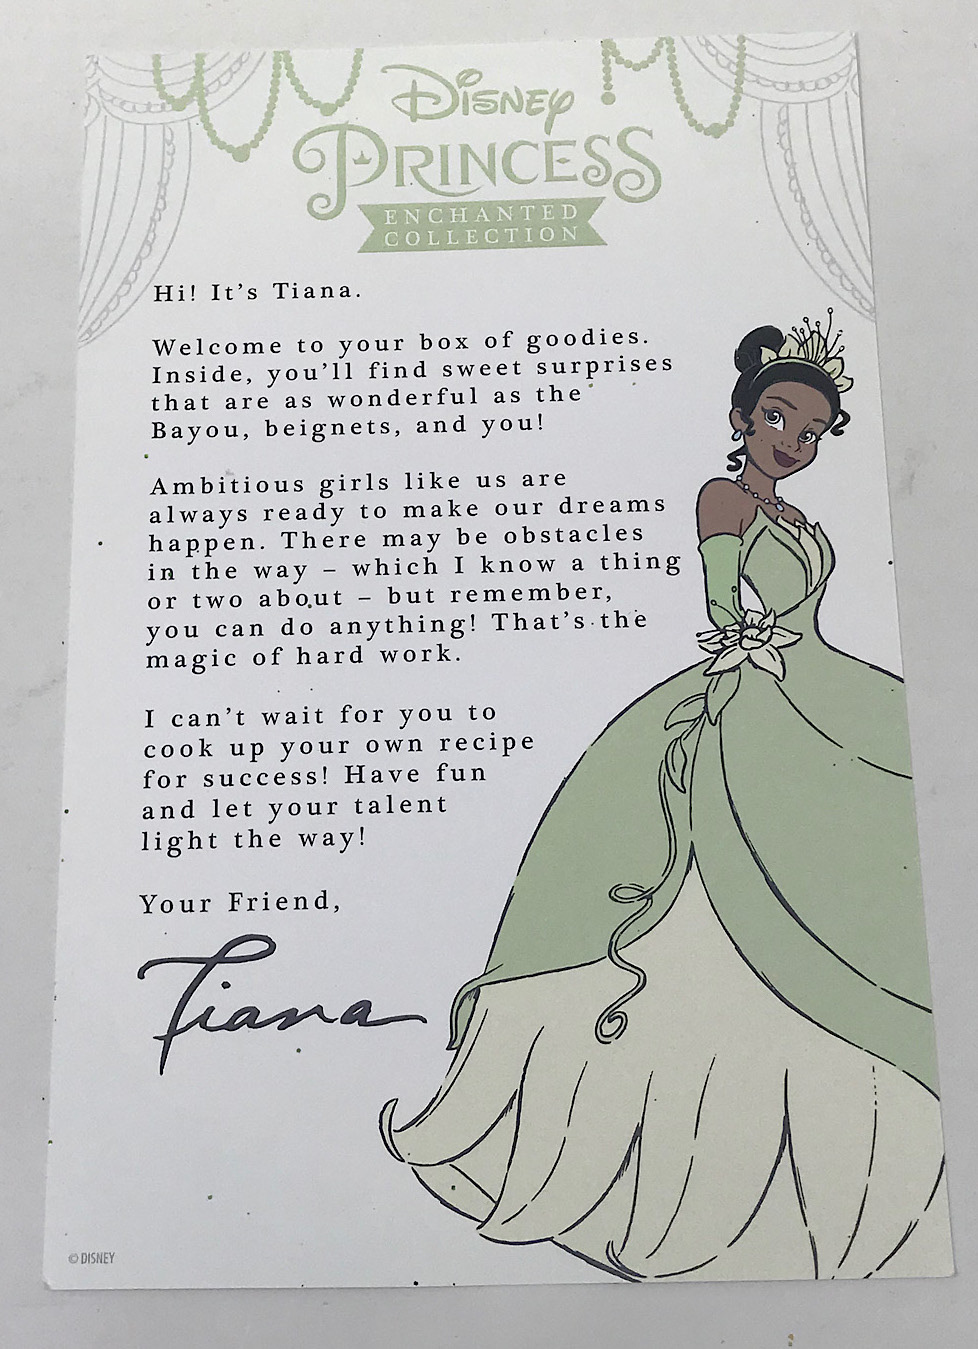 Disney
PRINCESS
ENCHANTED
COLLECTION
Hi! It's Tiana.
Welcome to your box of goodies.
Inside, you'll find sweet surprises
that are as wonderful as the
Bayou, beignets, and you!
Ambitious girls like us are
always ready to make our dreams
happen. There may be obstacles
in the way – which I know a thing
or two about – but remember,
you can do anything! That's the
magic of hard work.
I can't wait for you to
cook up your own recipe
for success! Have fun
and let your talent
light the way!
Your Friend,
Tiana
© DISNEY